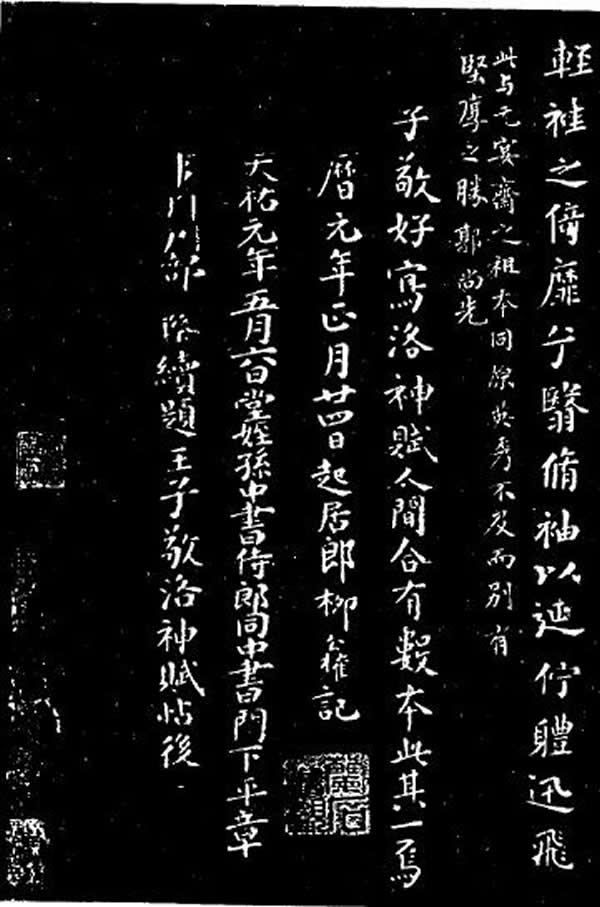 輕袿之倚靡兮翳脩袖以延佇體迅飛
此与元宴齋之祖本同際英秀不及而別有
堅厚之勝郭尚先
子敬好寫洛神賦人間合有數本此其一焉
曆元年正月廿四日起居郎柳公權記
天祐元年五月六日堂姪孫中書侍郎同中書門下平章
部 續題王子敬洛神賦帖後